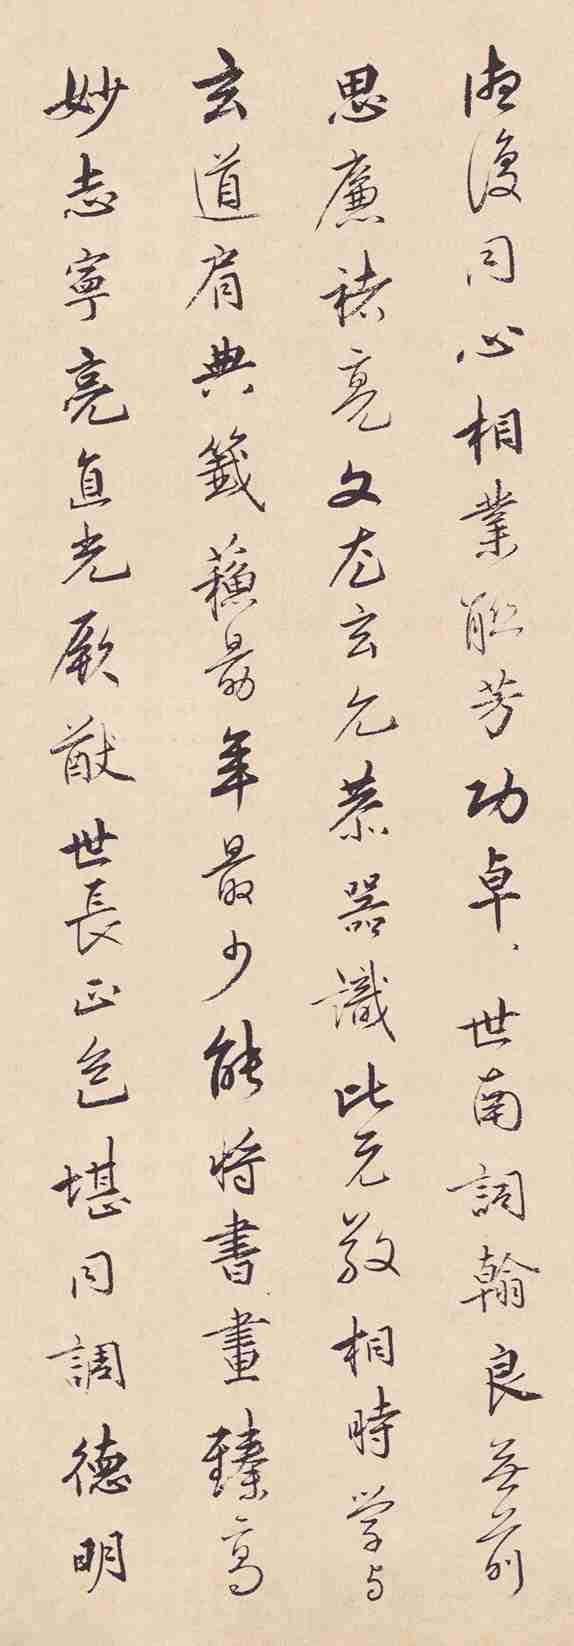 復同心相業聯芳功卓、世南詞翰良無前
思廉褚亮文尤玄允恭器識比元敬相時学与
玄道肩典籤蘓勗年最少能將書畫臻高
妙志寧亮直光厥猷世長正色堪同調德明